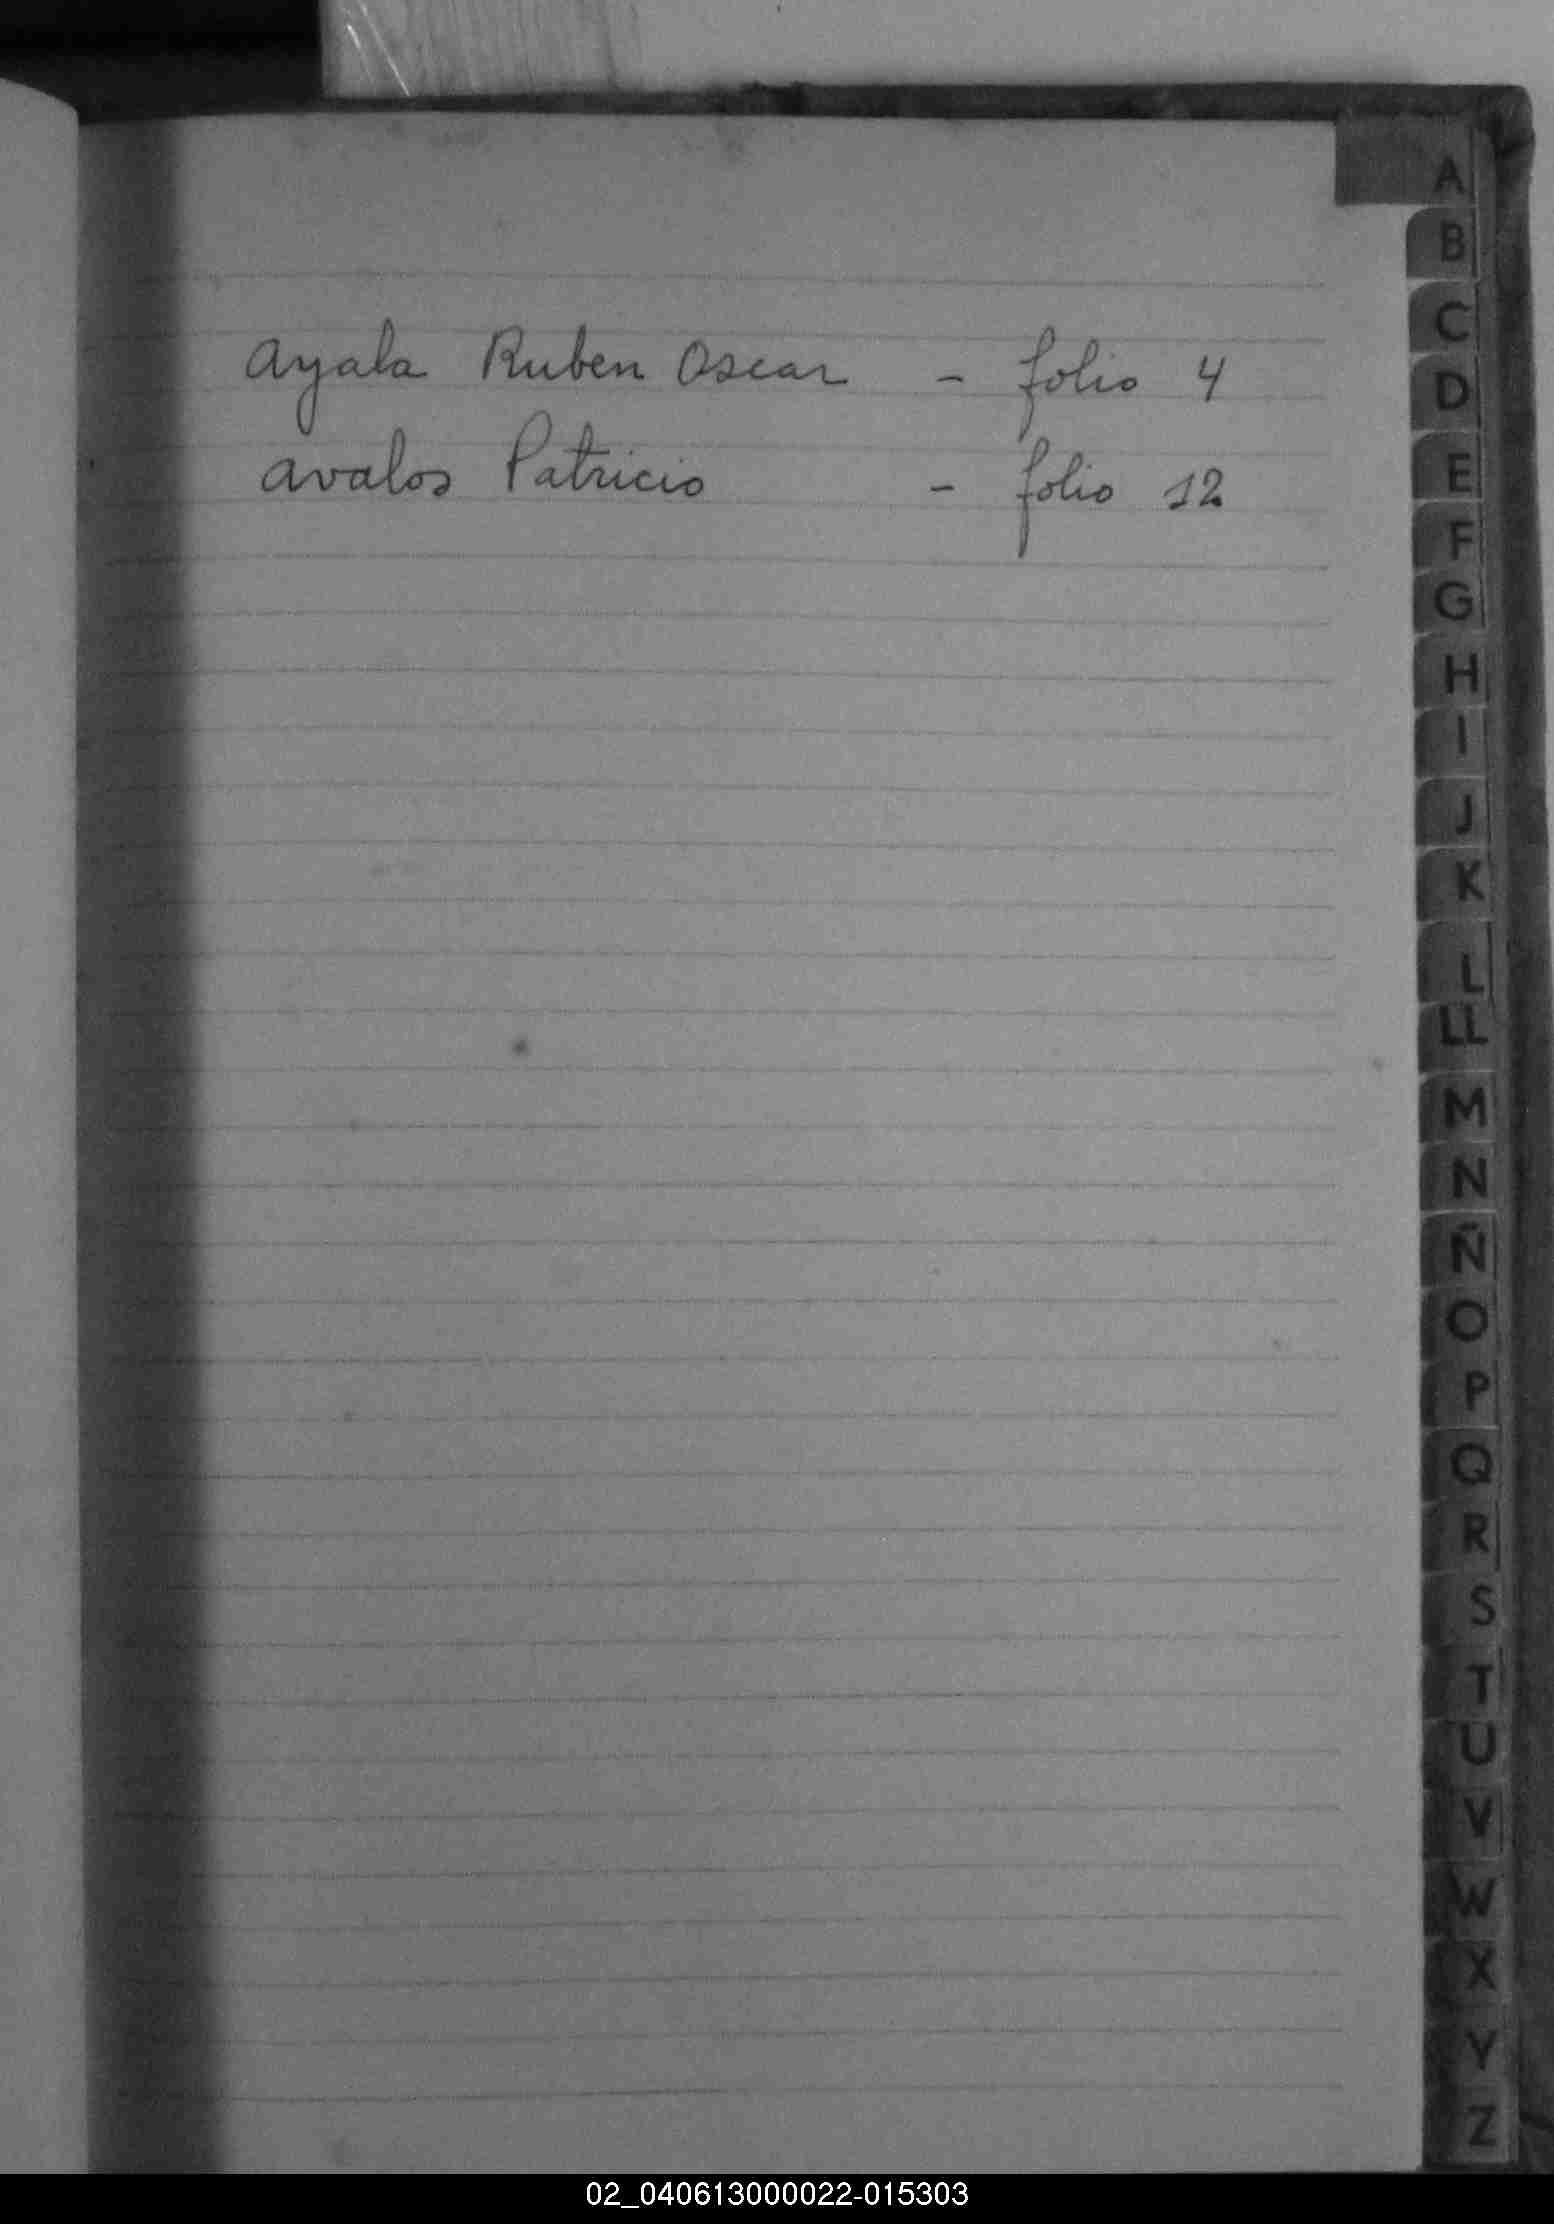 Ayala Ruben Oscar - folio 4
Avalos Patricio - folio 12
A
B
C
D
E
F
G
H
I
J
K
L
LL
M
N
Ñ
O
P
Q
R
S
T
U
V
W
X
Y
Z
02_040613000022-015303